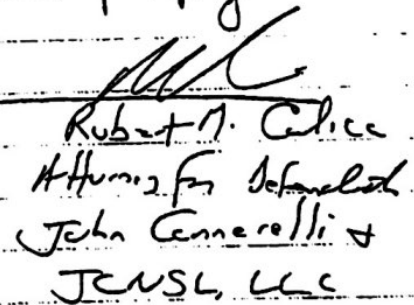 Robert M. Calica
Attorney for Defendants
John Cannarelli &
JCNSL, LLC